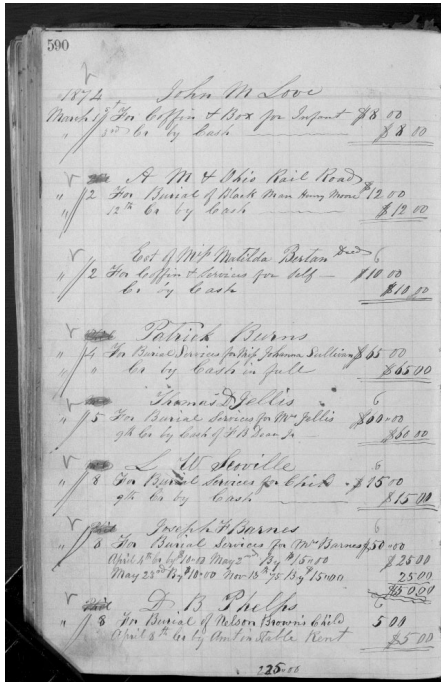 590
1874 John M Love
March 1st For Coffin & Box for Infant $8 00
" 3rd Cr by Cash $8 00
A M & Ohio Rail Road
" 2 For Burial of Black Man Henry Moore $12 00
" 12th Cr by Cash $12 00
Est of Miss Matilda Bertan Decd 6
" 2 For Coffin & Services for Self $10.00
Cr by Cash $10.00
Patrick Burns
" 4 For Burial Services for Miss Johnna Sullivan $65 00
" " Cr by Cash in full $65 00
Thomas D Jellis 6
" 5 For Burial Services for Mrs Jellis $60.00
9th Cr by Cash of F B Dean Jr $60 00
L W Scoville 6
" 8 For Burial Services for Child $15 00
9th Cr by Cash $15 00
Joseph F Barnes 6
" 8 For Burial Services for Mr Barnes $50.00
April 4th Cr by $10.00 May 2nd By $15.00 $25 00
May 23rd By $10.00 Nov 13th 75 By $15.00 25 00
D. B Phelps 6
" 8 For Burial of Nelson Brown's Child 5 00
April 8th Cr by Amt in Stable Rent $5 00
225.00